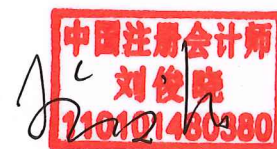 中国注册会计师
刘俊晓
110101480380